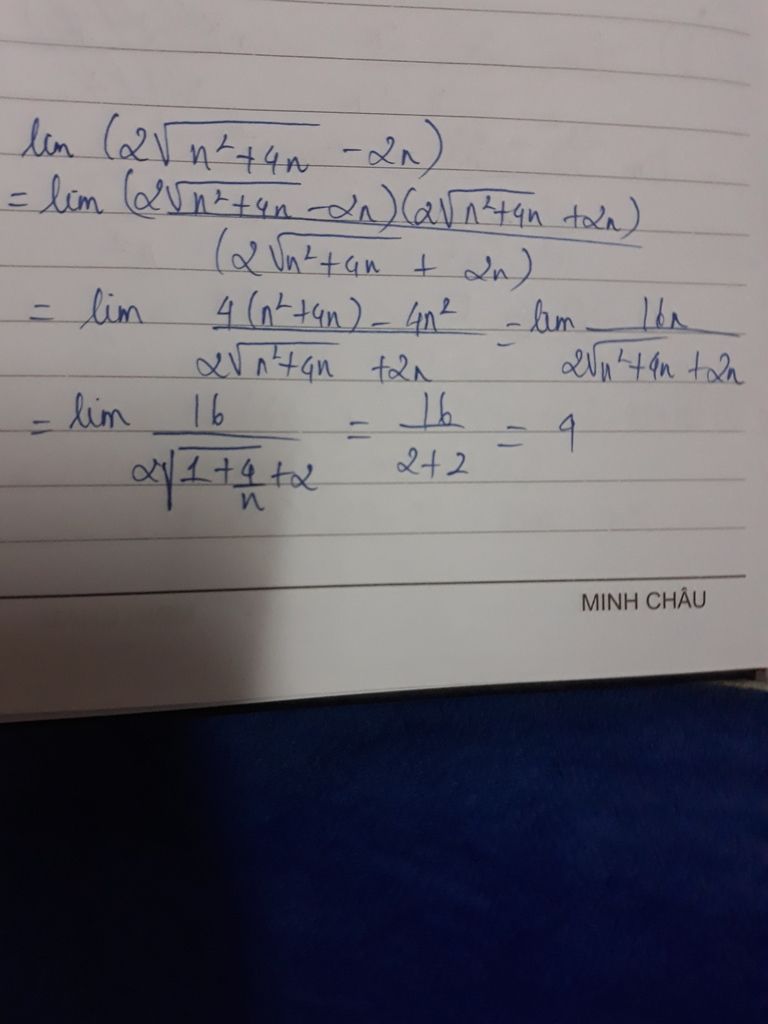 lim (2√(n²+4n) - 2n)
= lim (2√(n²+4n) - 2n)(2√(n²+4n) + 2n) / (2√(n²+4n) + 2n)
= lim (4(n²+4n) - 4n²) / (2√(n²+4n) + 2n) = lim 16n / (2√(n²+4n) + 2n)
= lim 16 / (2√(1+4/n) + 2) = 16 / (2+2) = 4
MINH CHÂU